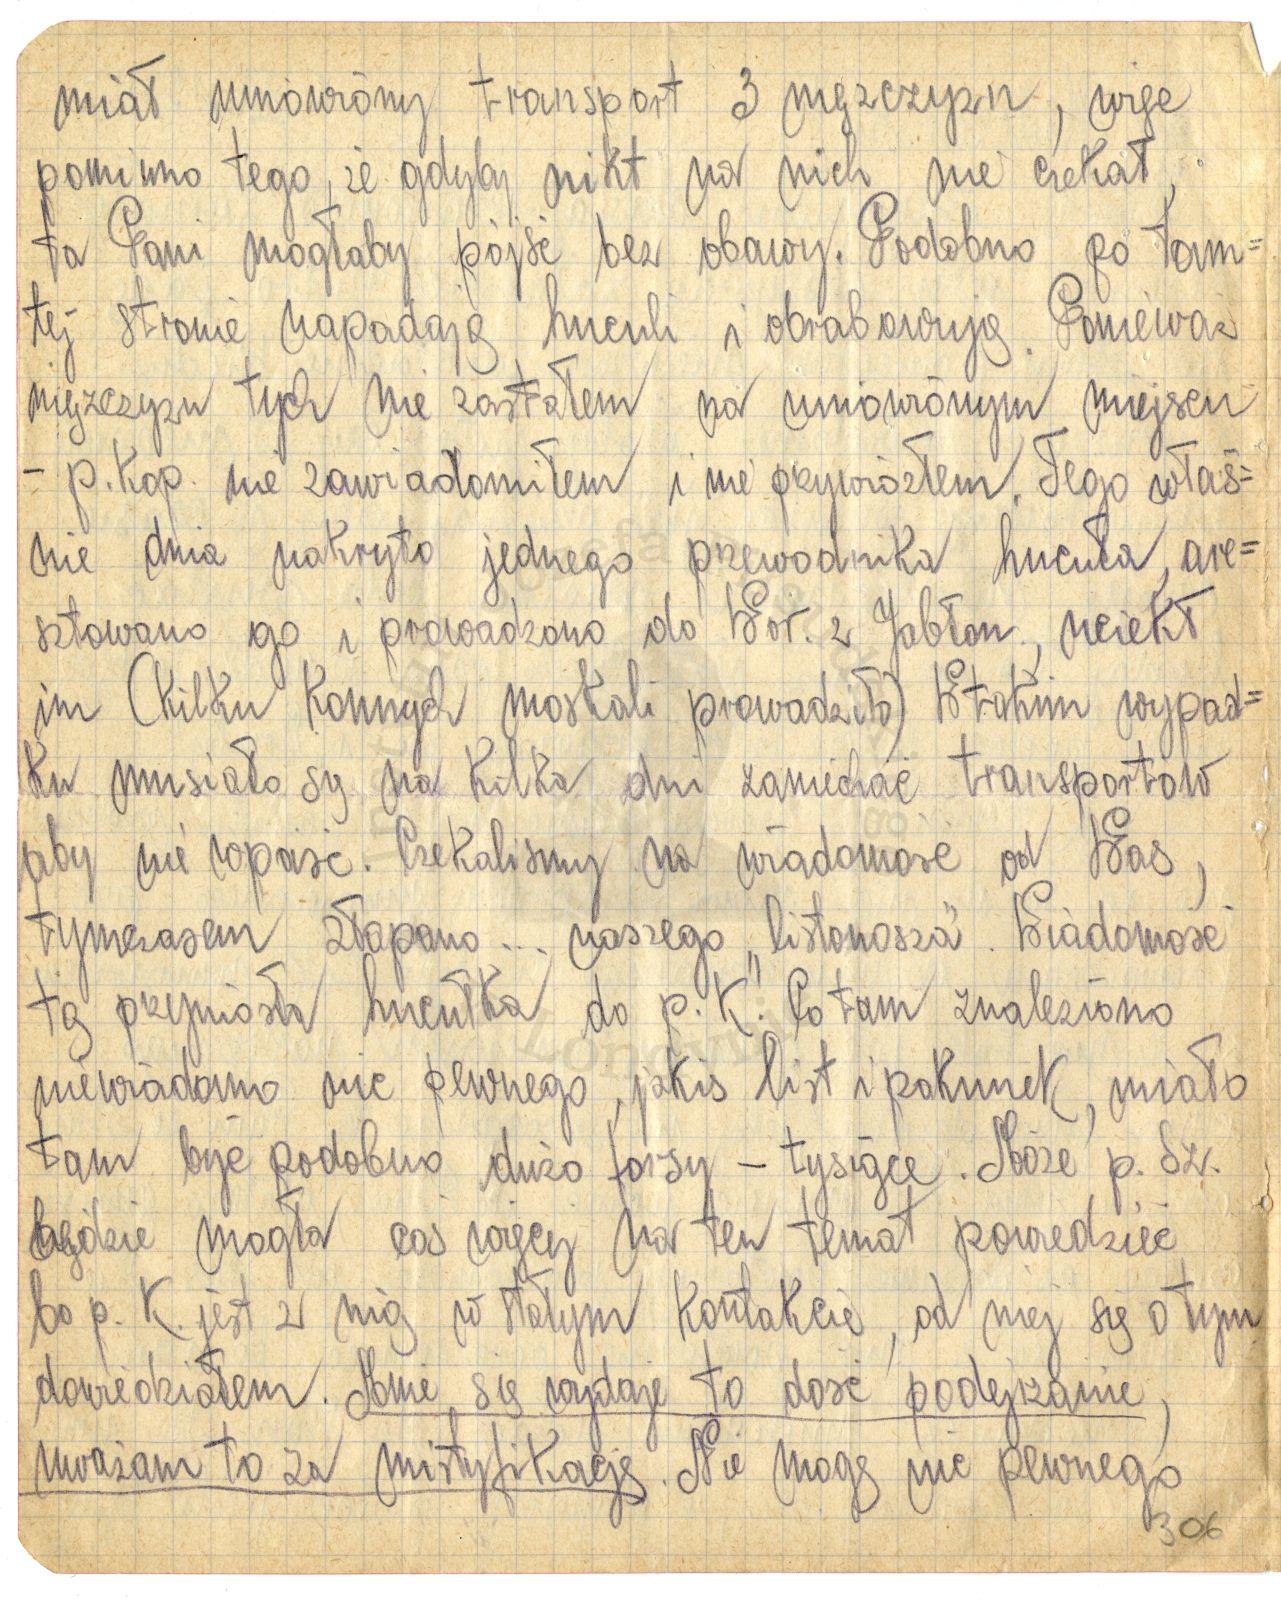 miał umówiony transport 3 mężczyzn, więc
pomimo tego, że gdyby nikt na nich nie czekał,
ta Pani mogłaby pójść bez obawy. Podobno po tam=
tej stronie napadają huculi i obrabowują. Ponieważ
mężczyzn tych nie zastałem na umówionym miejscu
- p. Kop. nie zawiadomiłem i nie przywiozłem. Tego właś=
nie dnia nakryto jednego przewodnika hucuła, are=
sztowano go i prowadzono do Wor. z Jabłon., uciekł
im (kilku konnych moskali prowadziło) W takim wypad=
ku musiało się na kilka dni zaniechać transportów
aby nie wpaść. Czekaliśmy na wiadomość od Was,
tymczasem złapano... naszego „listonosza”. Wiadomość
tę przyniosła hucułka do p. K". Co tam znaleziono
niewiadomo nic pewnego, jakiś list i pakunek, miało
tam być podobno dużo forsy - tysiące. Może p. Sz.
będzie mogła coś więcej na ten temat powiedzieć
bo p. K. jest z nią w stałym kontakcie, od niej się o tym
dowiedziałem. Mnie się wydaje to dość podejrzanie,
uważam to za mistyfikację. Nie mogę nic pewnego
306
Londyn